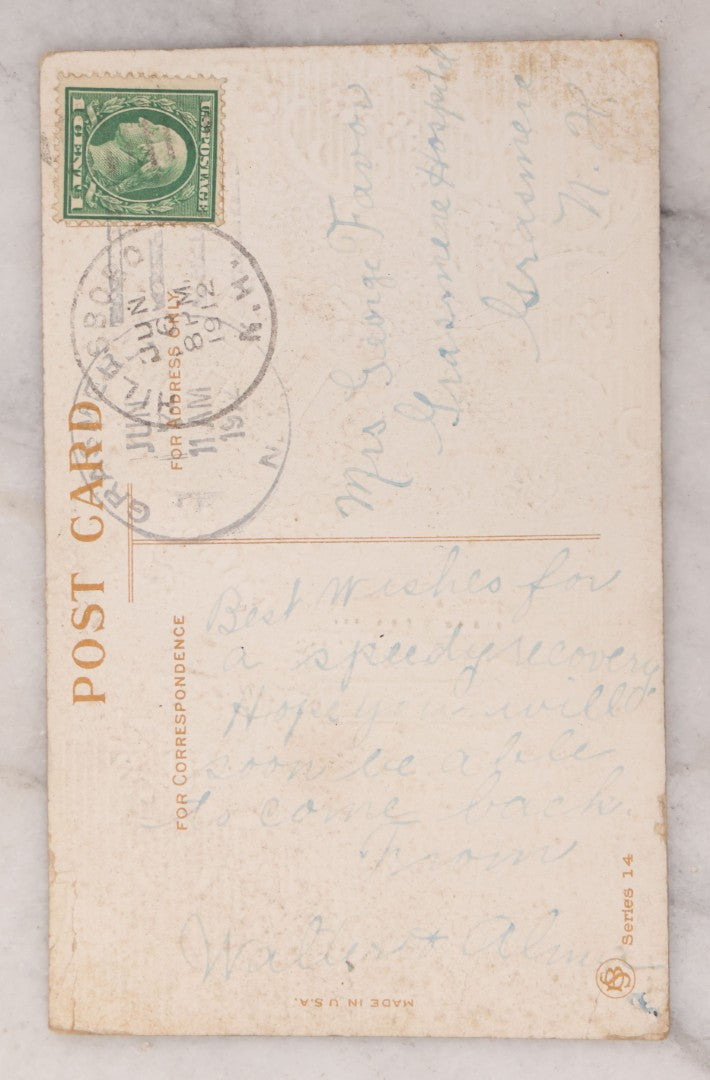 POST CARD
FOR CORRESPONDENCE
FOR ADDRESS ONLY
U.S. POSTAGE
1 CENT 1
HILLSBORO
JUN
6
8 PM
1912
N.H.
JUN
11 AM
19
N.
Mrs George Favor
Grasmere Hospital
Grasmere
N. H.
Best Wishes for
a speedy recovery
Hope you will
soon be able
to come back
From
Walder + Alma
MADE IN U.S.A.
Series 14